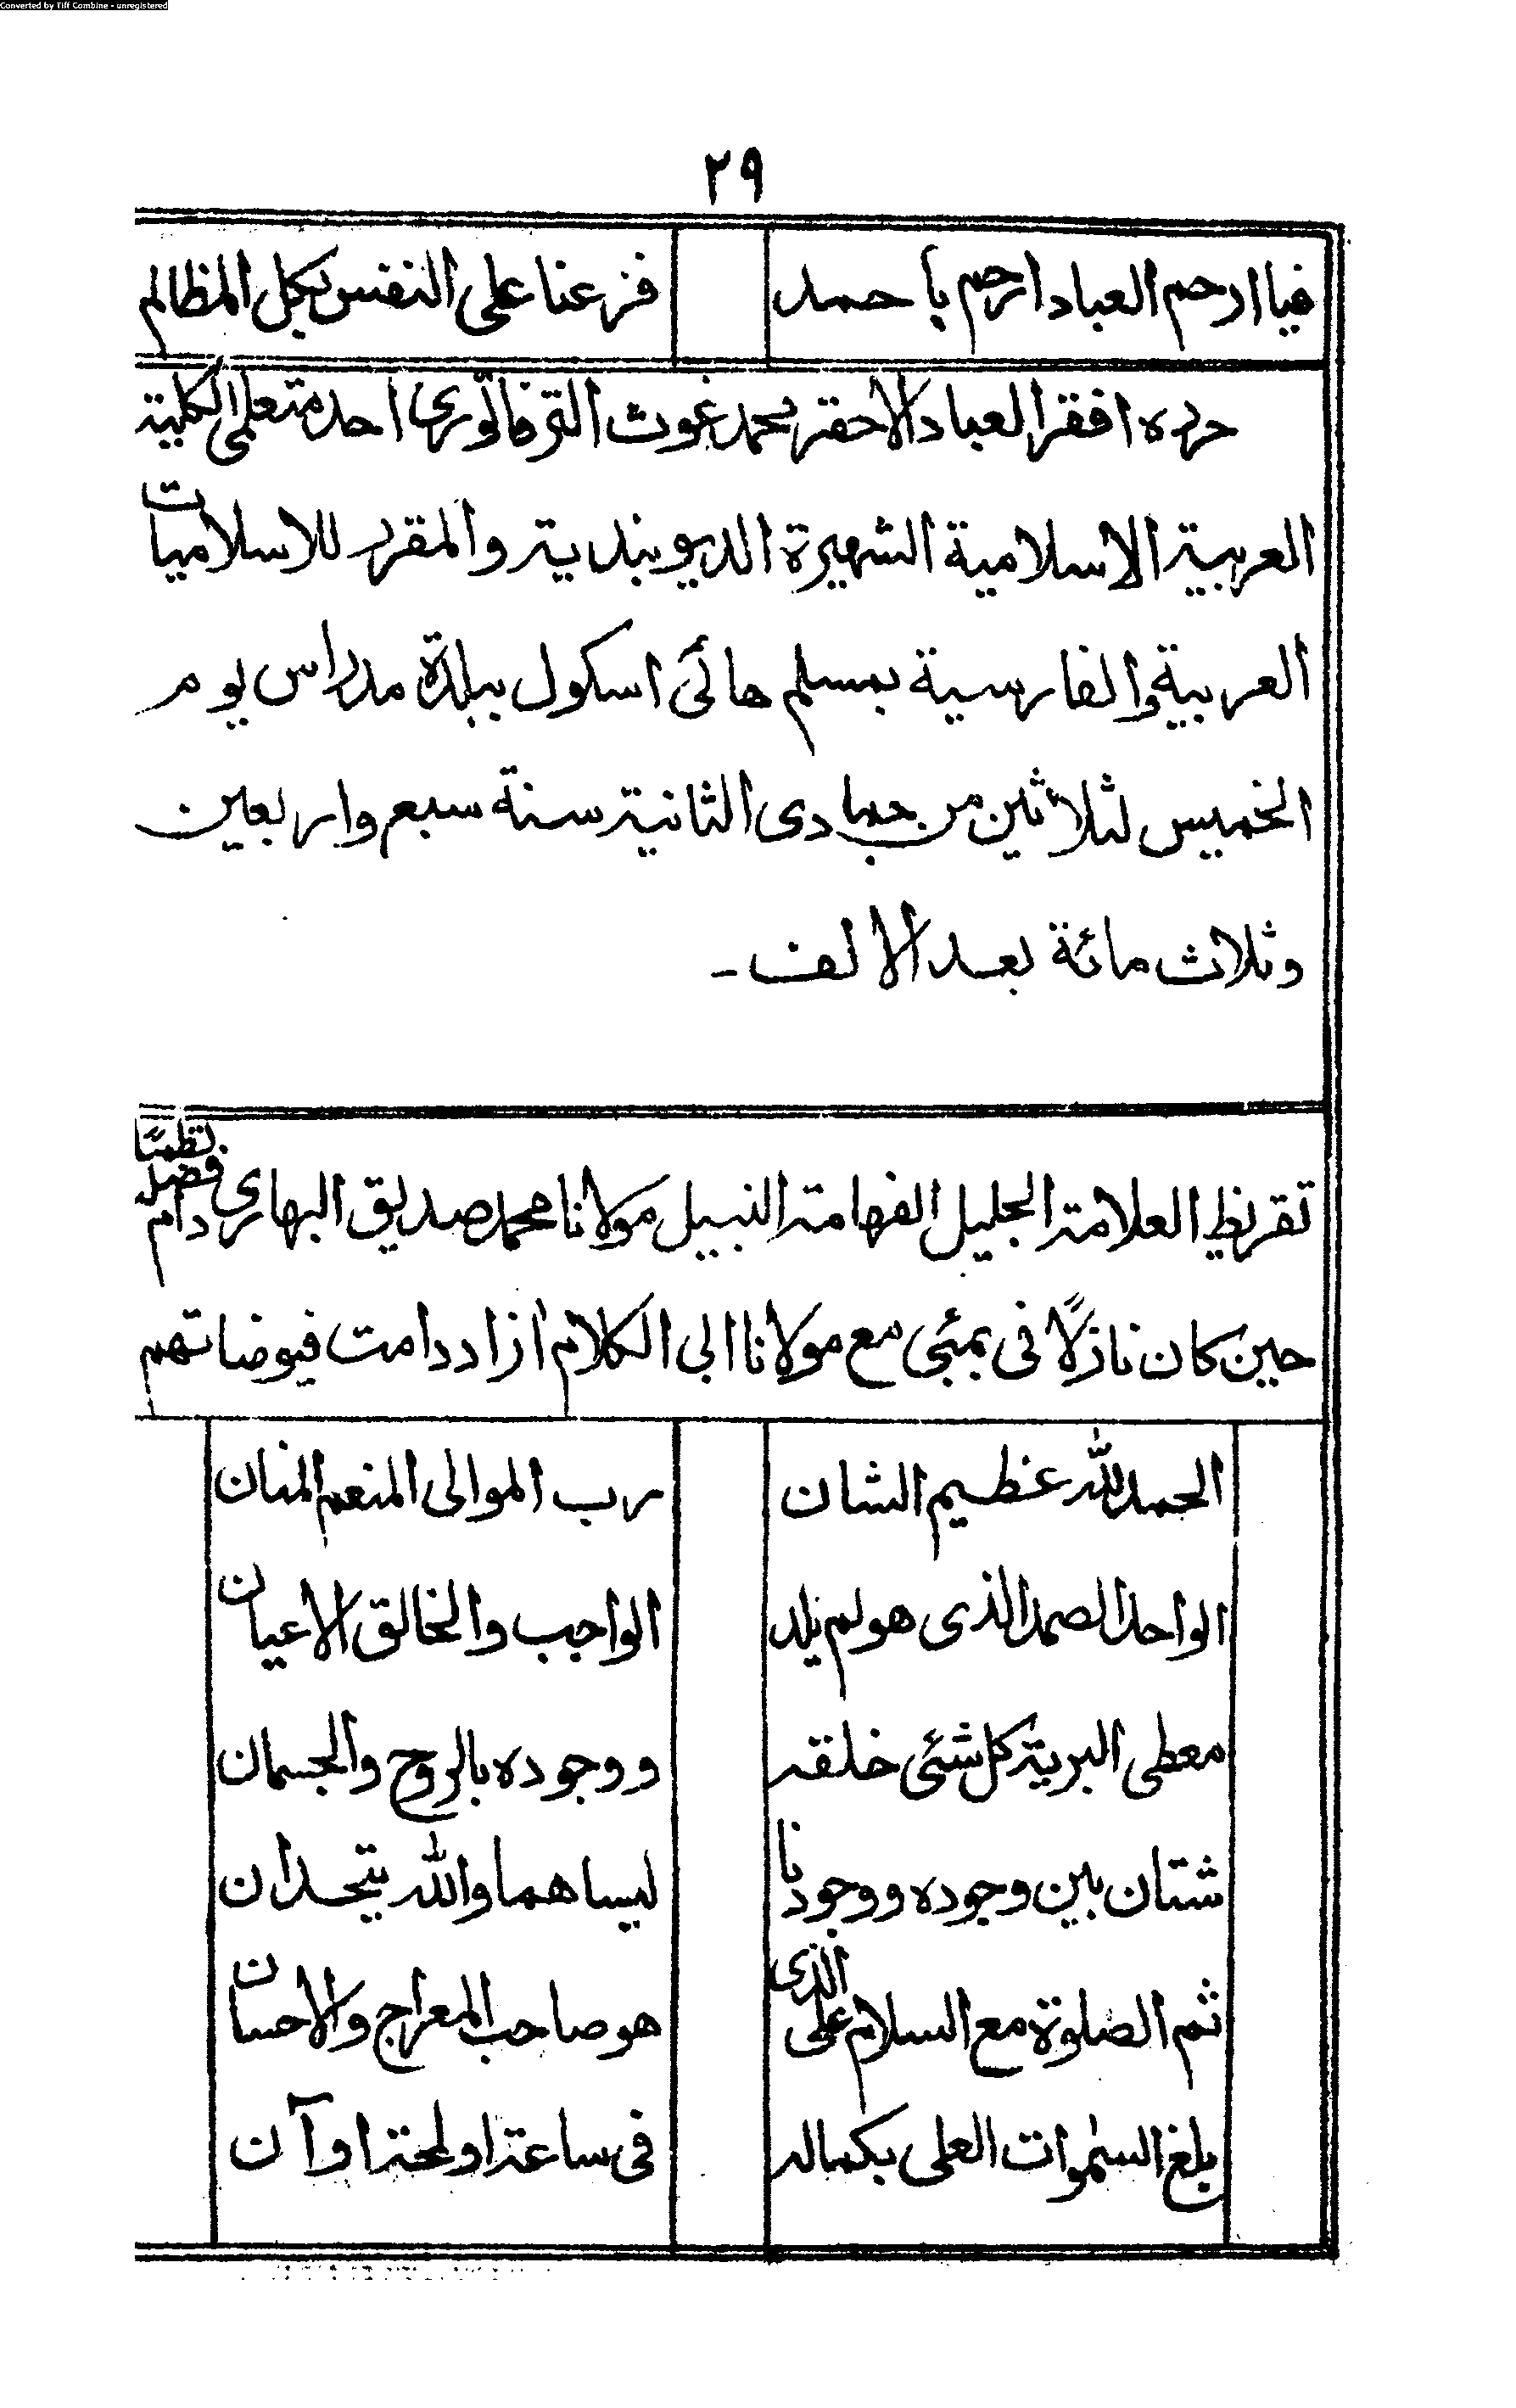 Converted by Tiff Combine - unregistered
٢٩
فيا ارحم العباد ارحم باحمد فزعنا على النفس بكل المظالم
حرره افقر العباد الاحقر محمد غوث احد متعلمى الكلية
العربية الاسلامية الشهيرة الديوبندية والمقرر للاسلاميات
العربية والفارسية بمسلم هائى اسكول ببلدة مدراس يوم
الخميس لثلاثين من جمادى الثانية سنة سبع واربعين
وثلاث مائة بعد الالف -
تقريظ العلامة الجليل الفهامة النبيل مولانا محمد صديق البهارى دام فضله نظمًا
حين كان نازلًا فى بمبئى مع مولانا ابى الكلام ازاد دامت فيوضاتهم
الحمد لله عظيم الشان رب الموالى المنعم المنان
الواحد الصمد الذى هو لم يلد الواجب والخالق الاعيان
معطى البرية كل شئى خلقه ووجوده بالروح والجسمان
شتان بين وجوده ووجودنا ليسا هما والله يتحدان
ثم الصلوة مع السلام على الذى هو صاحب المعراج والاحسان
بلغ السمٰوات العلى بكماله فى ساعة او لمحة او آن